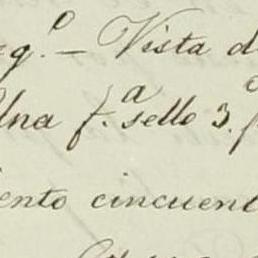 g.º — Vista d
Una f.ª sello 3.º
ento cincuent